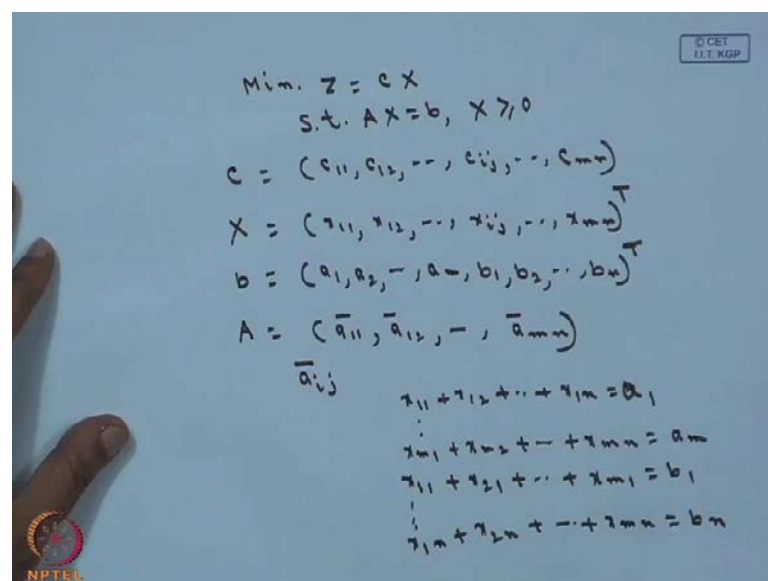 © CET
I.I.T. KGP
Min. Z = c X
S.t. A X = b, X ≥ 0
c = (c₁₁, c₁₂, --, cᵢⱼ, --, cₘₙ)
X = (x₁₁, x₁₂, --, xᵢⱼ, --, xₘₙ)ᵀ
b = (a₁, a₂, -, aₘ, b₁, b₂, --, bₙ)ᵀ
A = (a̅₁₁, a̅₁₂, -, a̅ₘₙ)
a̅ᵢⱼ
x₁₁ + x₁₂ + -- + x₁ₙ = a₁
⋮
xₘ₁ + xₘ₂ + -- + xₘₙ = aₘ
x₁₁ + x₂₁ + -- + xₘ₁ = b₁
⋮
x₁ₙ + x₂ₙ + -- + xₘₙ = bₙ
NPTEL